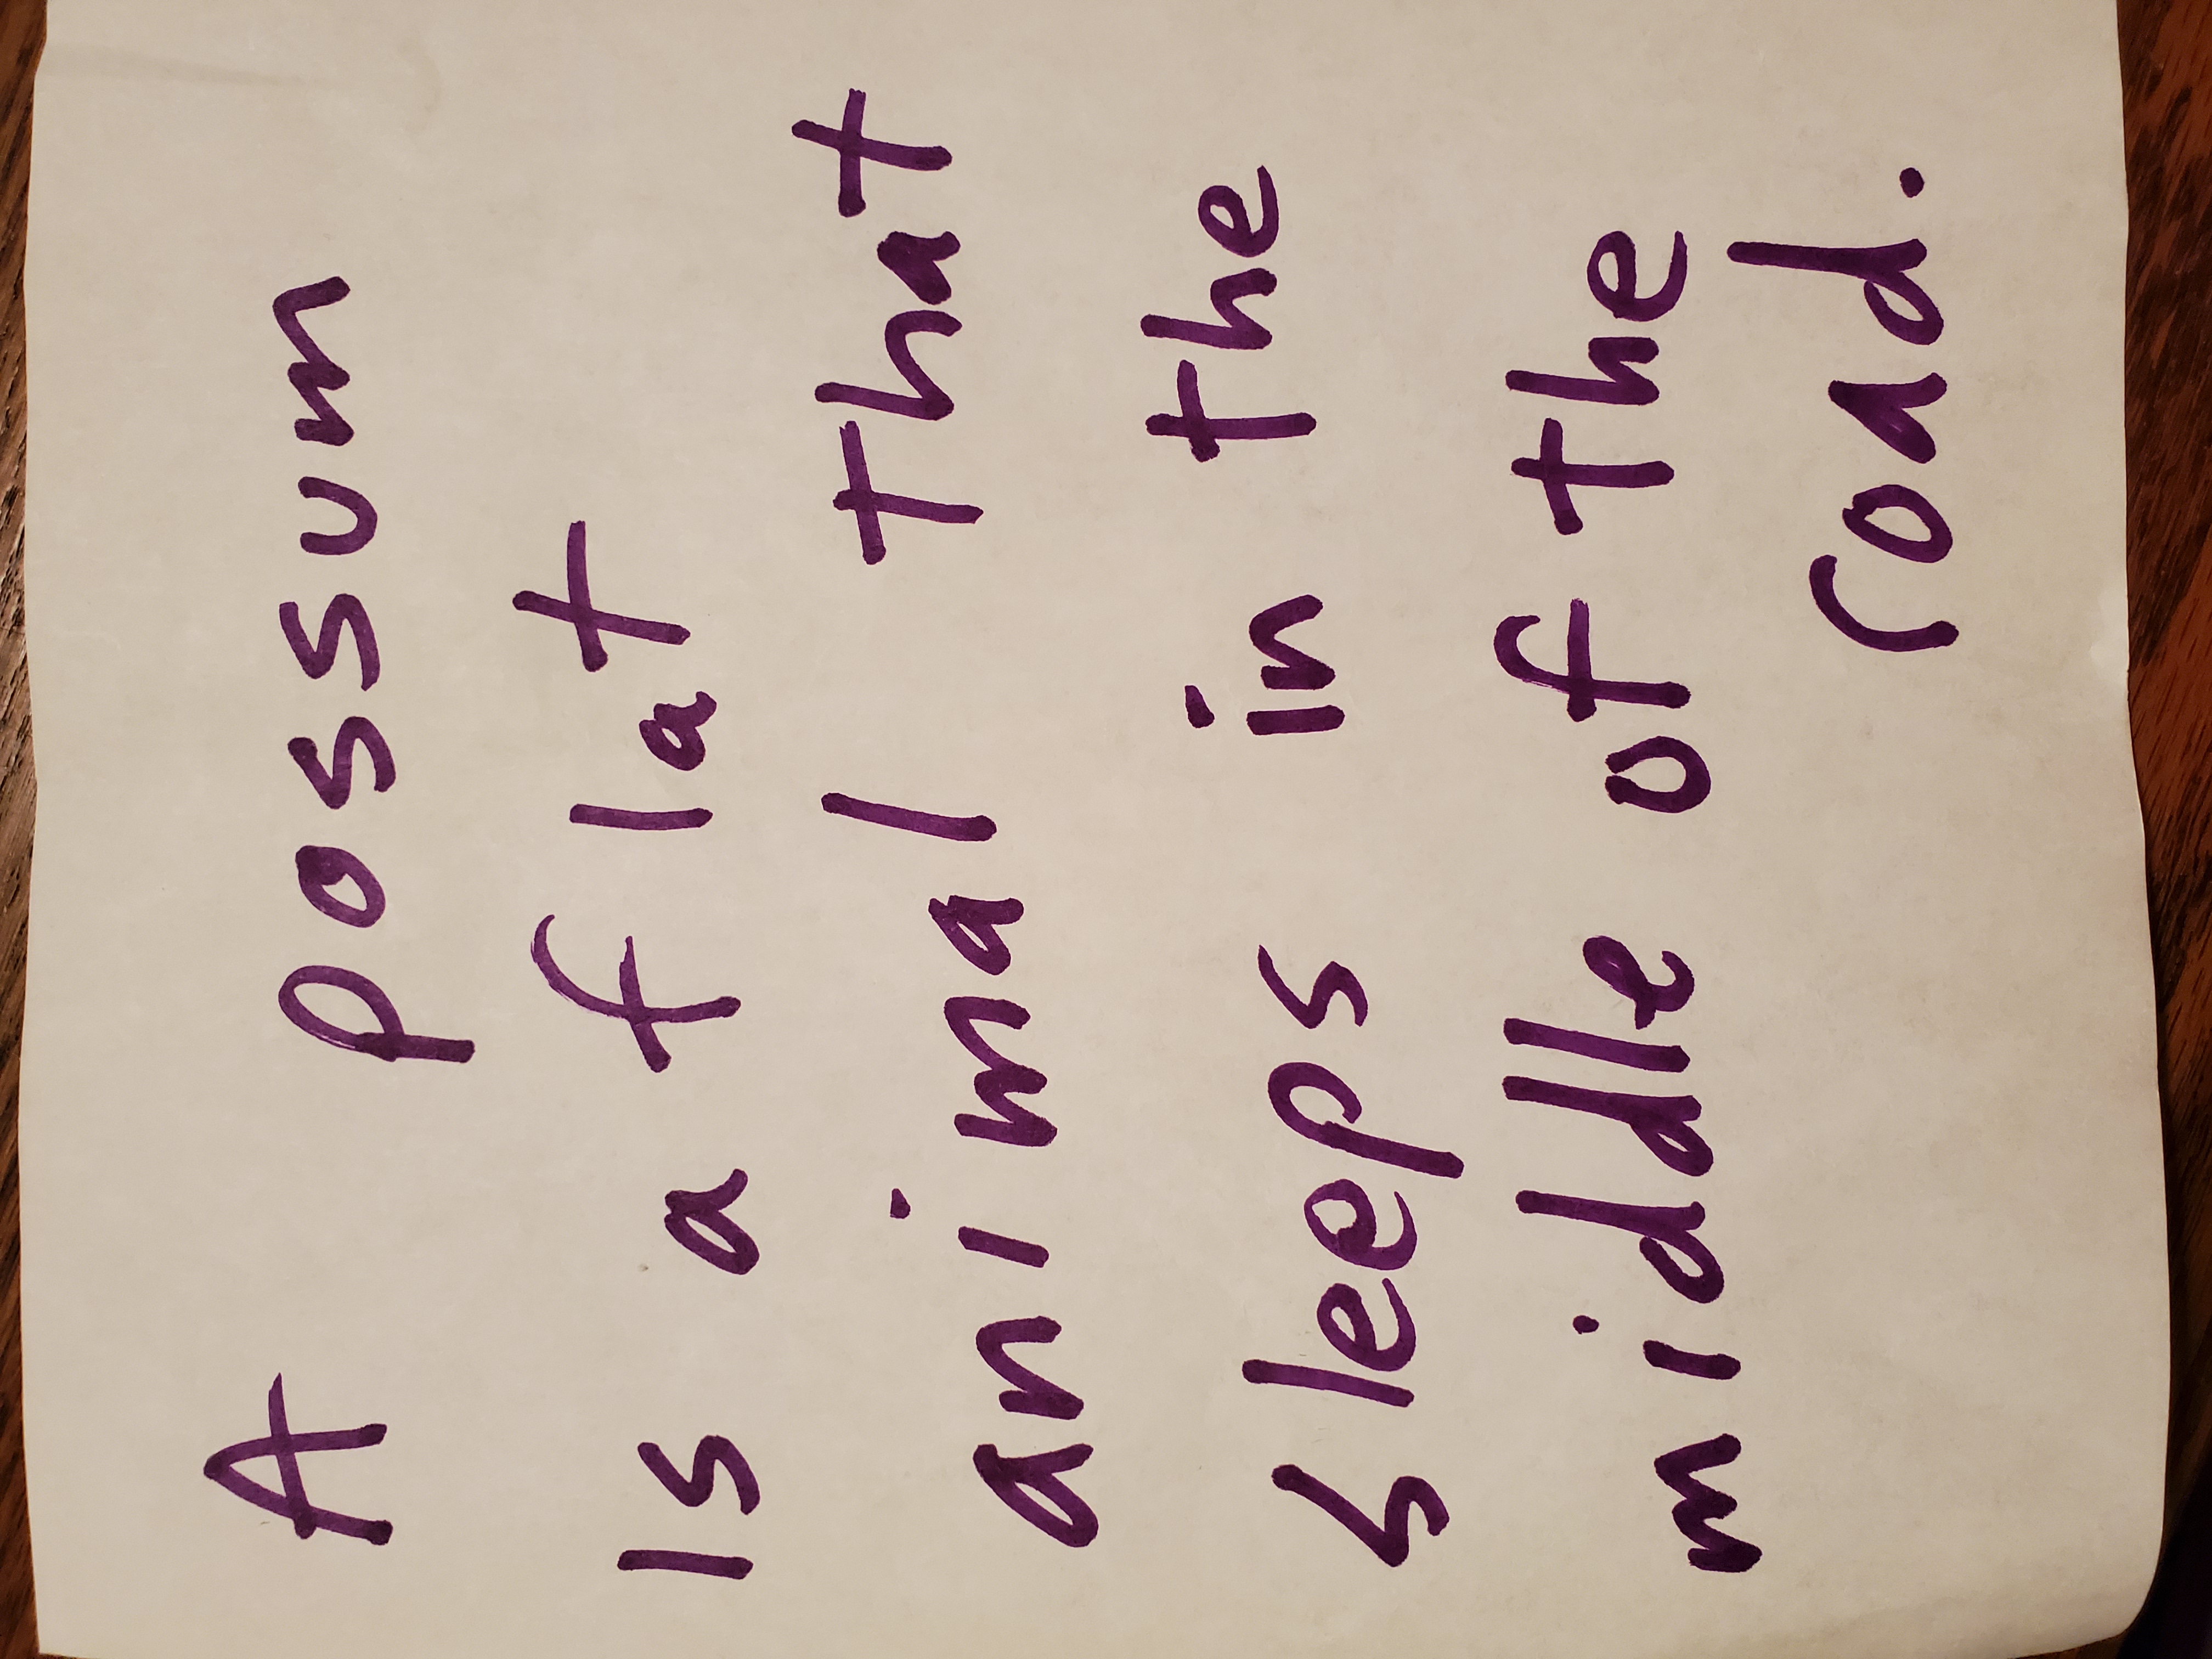 A possum
is a flat
animal that
sleeps in the
middle of the
road.